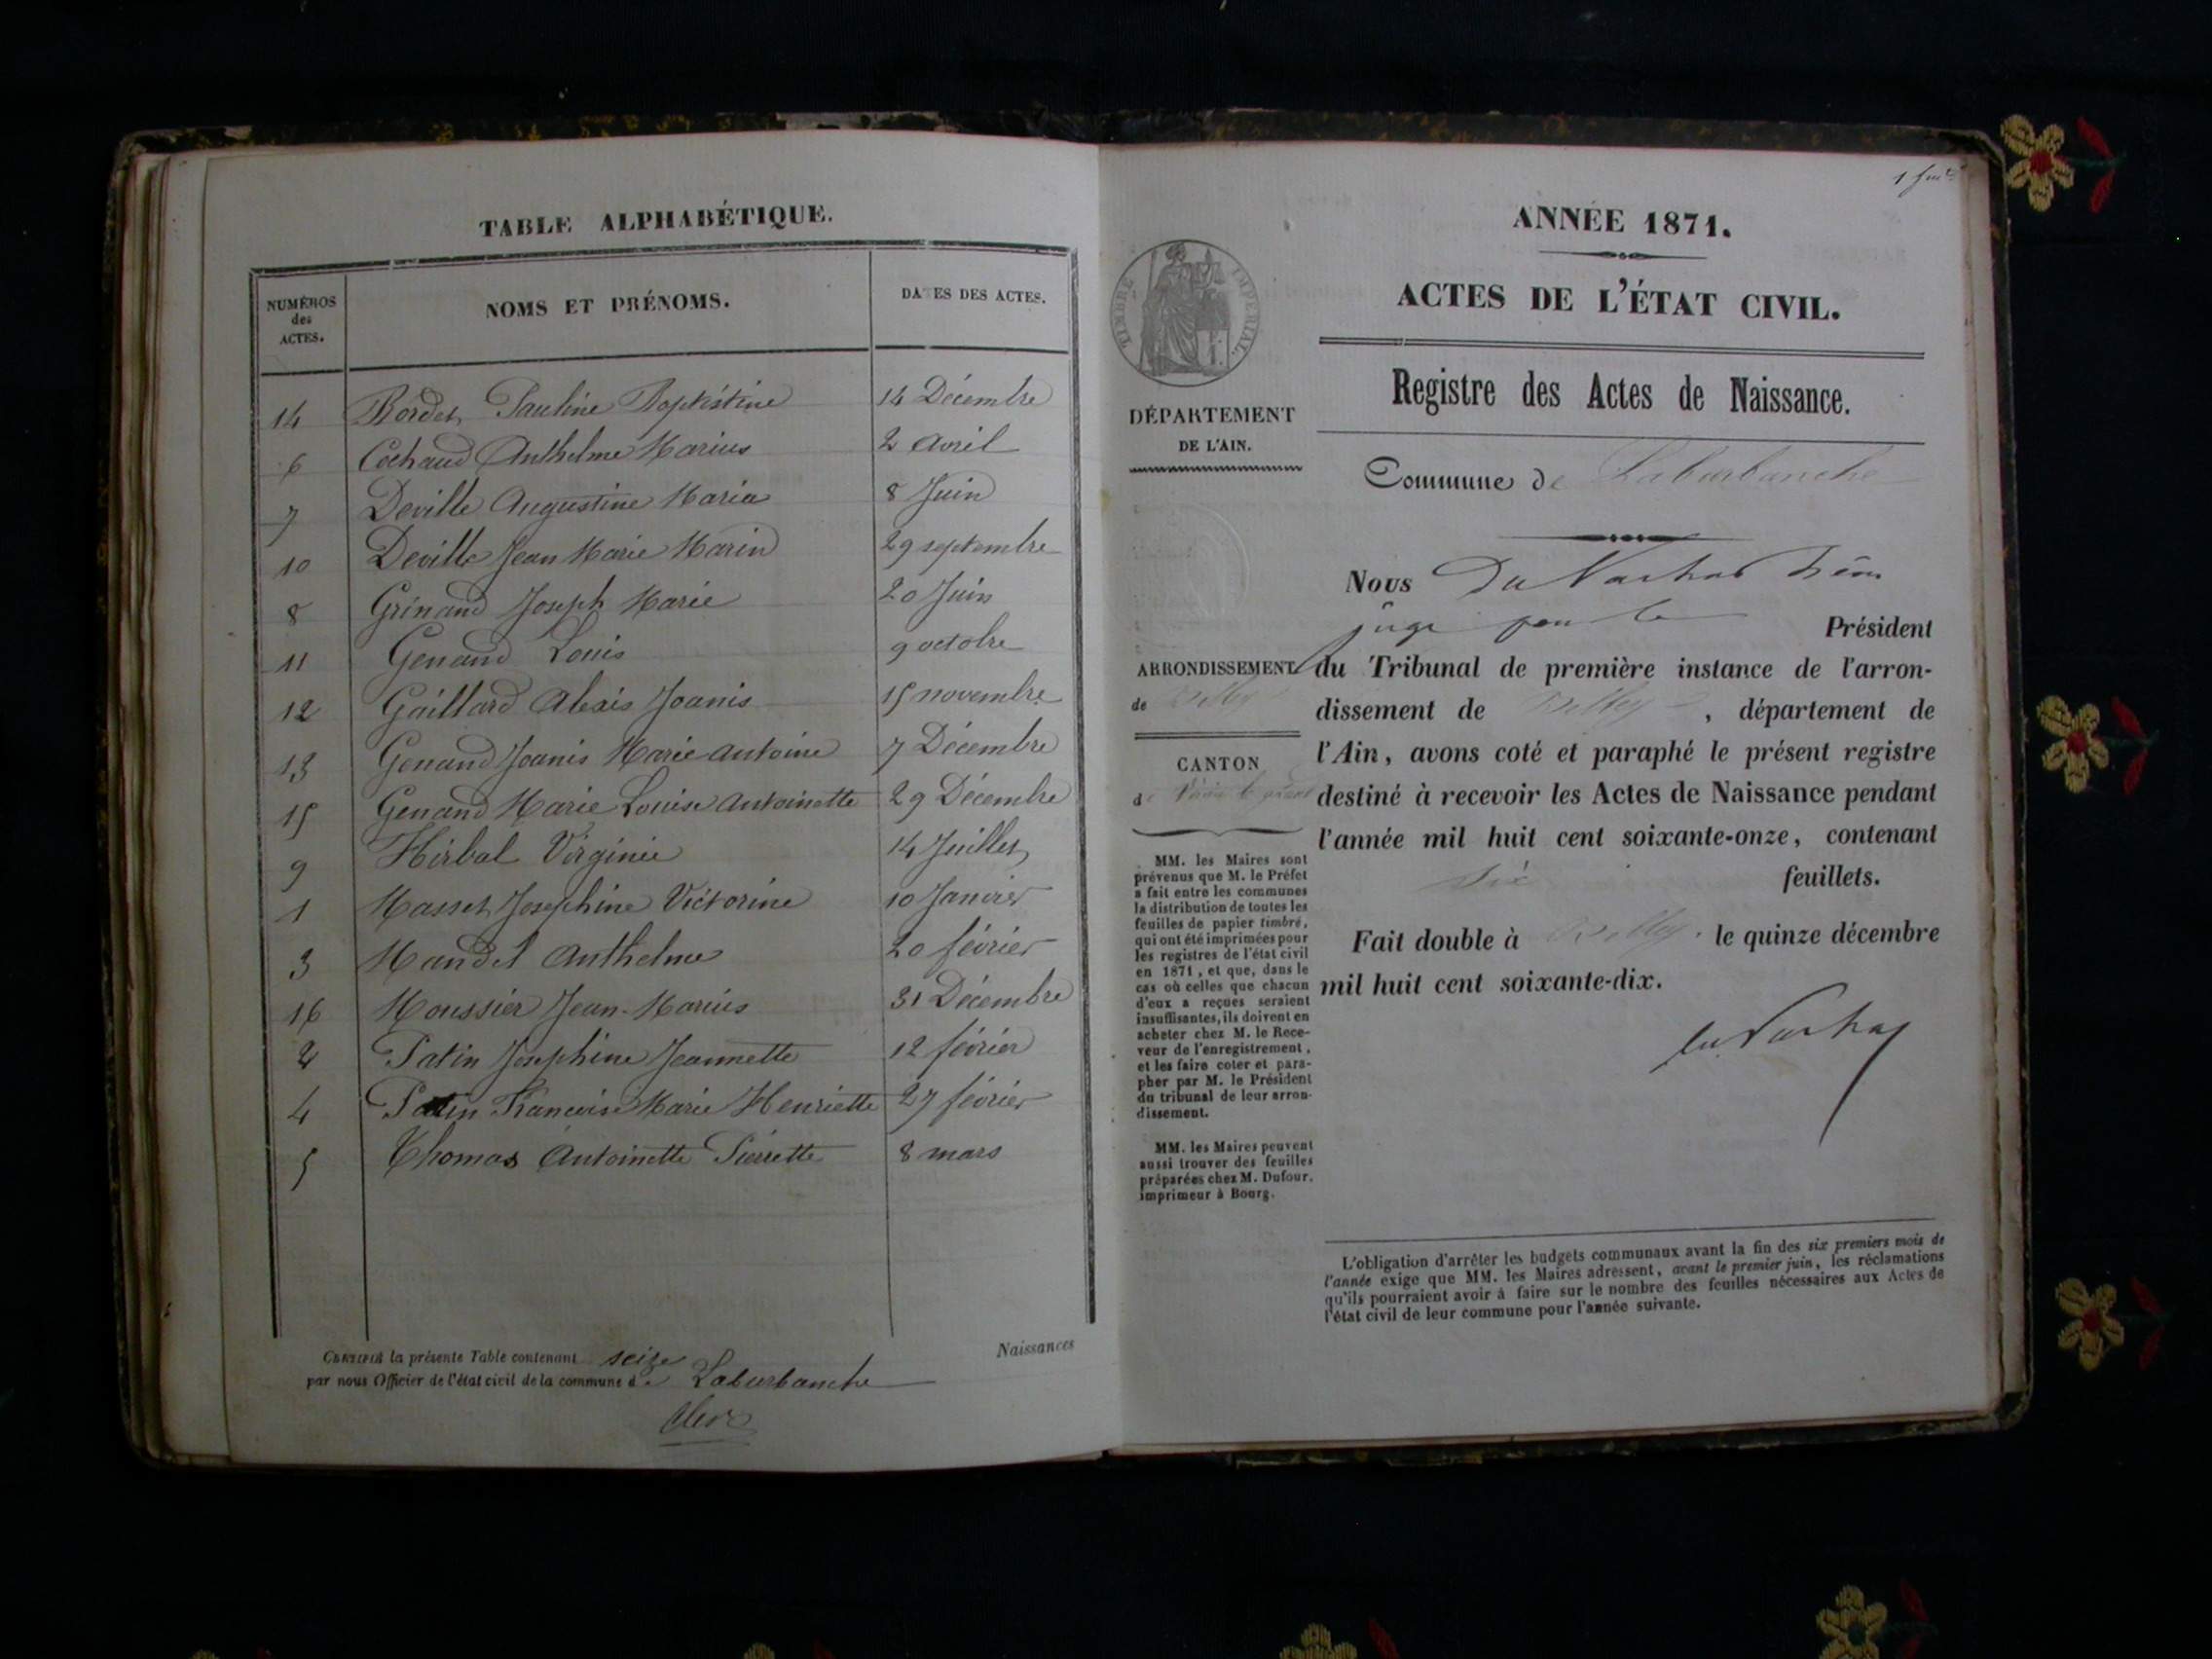 TABLE ALPHABÉTIQUE.
NUMÉROS des ACTES. NOMS ET PRÉNOMS. DATES DES ACTES.
14 Bordet Pauline Baptistine 14 Décembre
6 Cochaud Anthelme Marius 2 avril
7 Deville Augustine Maria 8 Juin
10 Deville Jean Marie Marin 29 septembre
8 Grinand Joseph Marie 20 Juin
11 Genand Louis 9 octobre
12 Gaillard Alexis Joanis 15 novembre
13 Genand Joanis Marie Antoine 7 Décembre
15 Genand Marie Louise Antoinette 29 Décembre
9 Hirbal Virginie 14 Juillet
1 Masset Josephine Victorine 10 Janvier
3 Mandel Anthelme 20 février
16 Moussier Jean-Marius 31 Décembre
2 Patin Josephine Jeannette 12 février
4 Patin Francoise Marie Henriette 27 février
5 Thomas Antoinette Pierrette 8 mars
Certifié la présente Table contenant seize
par nous Officier de l'état civil de la commune de Laburbanche
Naissances
Clerc
1
ANNÉE 1871.
ACTES DE L'ÉTAT CIVIL.
Registre des Actes de Naissance.
Commune de Laburbanche
TIMBRE IMPÉRIAL.
DÉPARTEMENT
DE L'AIN.
ARRONDISSEMENT
de Belley
CANTON
de
MM. les Maires sont
prévenus que M. le Préfet
a fait entre les communes
la distribution de toutes les
feuilles de papier timbré,
qui ont été imprimées pour
les registres de l'état civil
en 1871, et que, dans le
cas où celles que chacun
d'eux a reçues seraient
insuffisantes, ils doivent en
acheter chez M. le Rece-
veur de l'enregistrement,
et les faire coter et para-
pher par M. le Président
du tribunal de leur arron-
dissement.
MM. les Maires peuvent
aussi trouver des feuilles
préparées chez M. Dufour,
imprimeur à Bourg.
Nous Du
juge pour le Président
du Tribunal de première instance de l'arron-
dissement de Belley, département de
l'Ain, avons coté et paraphé le présent registre
destiné à recevoir les Actes de Naissance pendant
l'année mil huit cent soixante-onze, contenant
six feuillets.
Fait double à Belley. le quinze décembre
mil huit cent soixante-dix.
L'obligation d'arrêter les budgets communaux avant la fin des six premiers mois de
l'année exige que MM. les Maires adressent, avant le premier juin, les réclamations
qu'ils pourraient avoir à faire sur le nombre des feuilles nécessaires aux Actes de
l'état civil de leur commune pour l'année suivante.